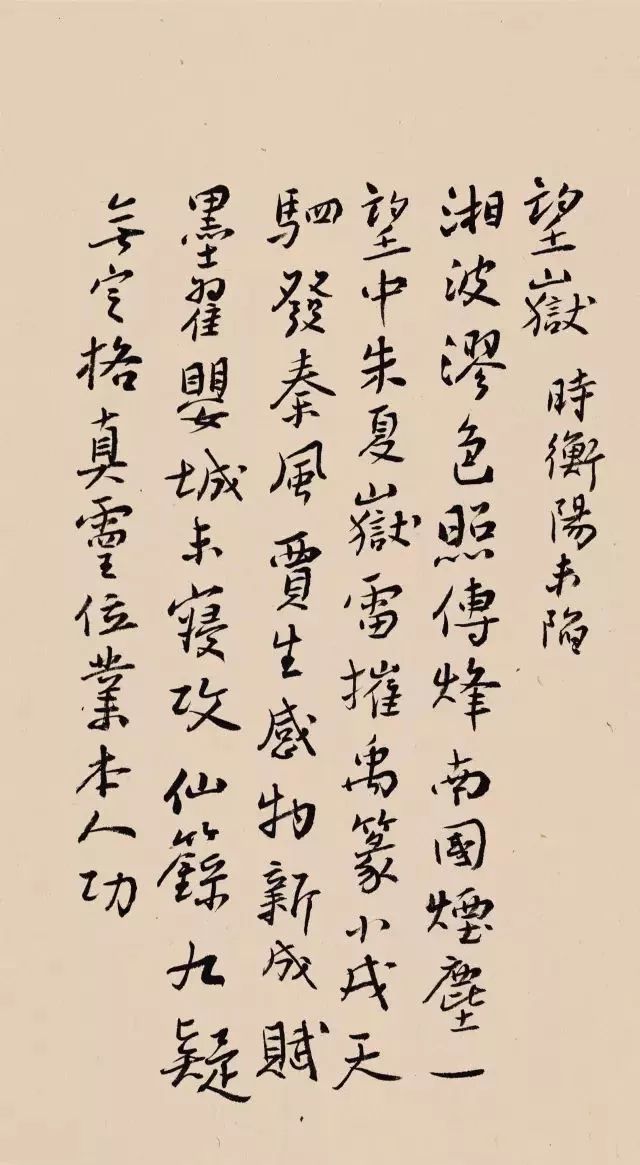 望嶽 時衡陽未陷
湘波漻色照傳烽南國煙塵一
望中朱夏嶽雷摧禹篆小戎天
駟發秦風賈生感物新成賦
墨翟嬰城未寑攻仙籙九疑
無定格真靈位業本人功